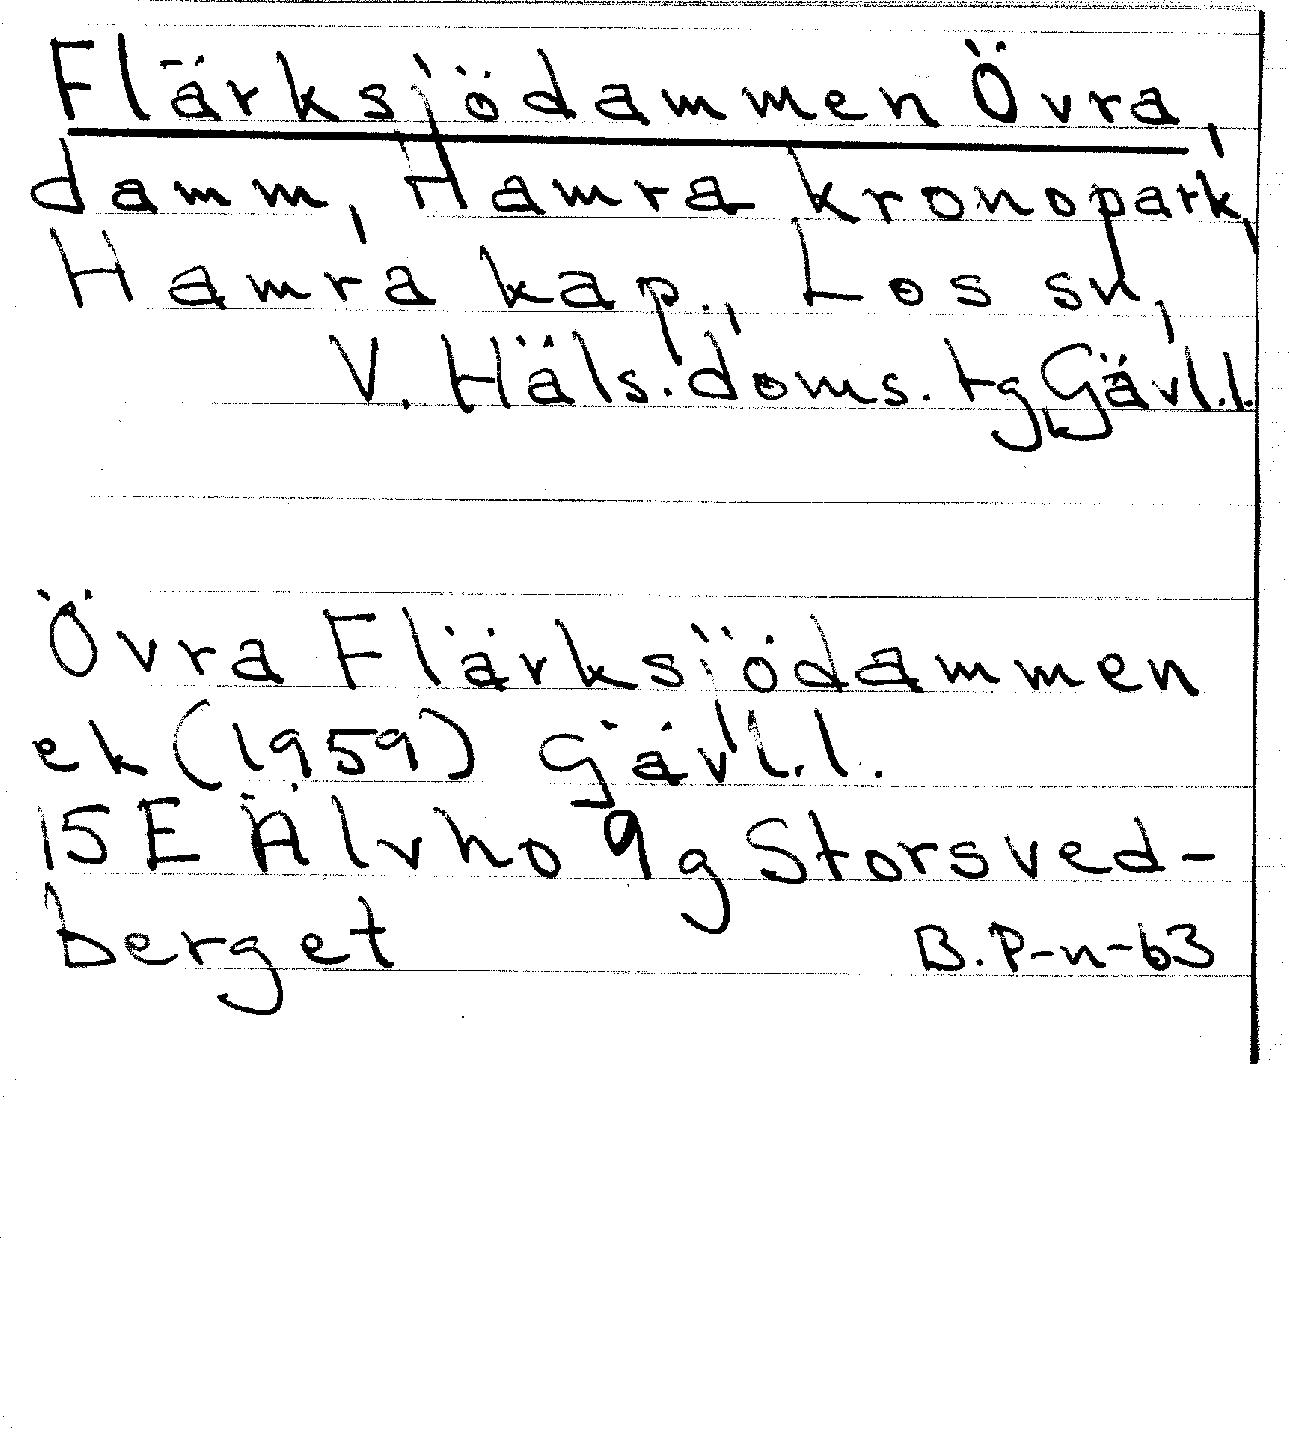 Flärksjödammen Övra,
damm, Hamra kronopark,
Hamra kap., Los sn,
V. Häls. doms. tg, Gävl.l.
Övra Flärksjödammen
ek (1959) Gävl.l.
15E Älvho 9g Storsved-
berget B.P-n-63